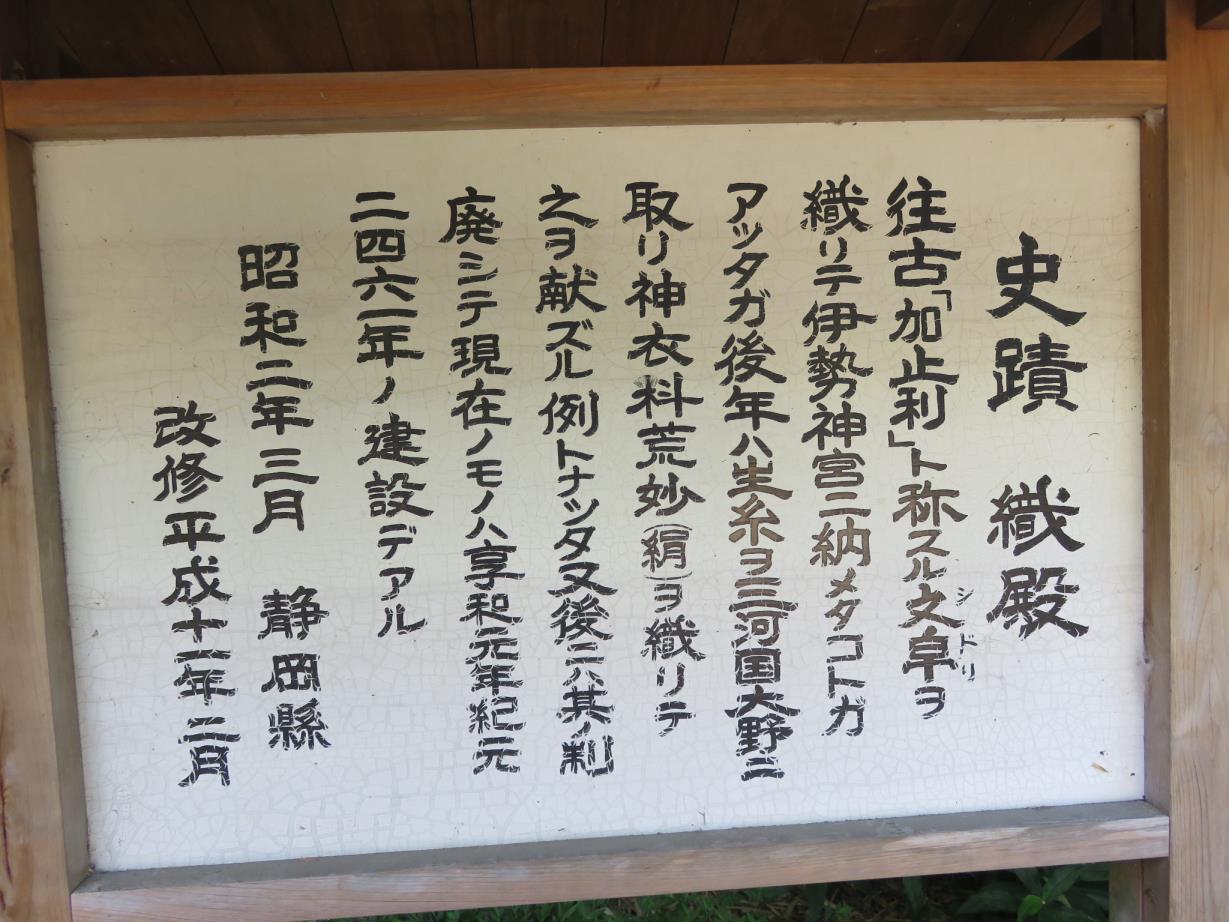 史蹟 織殿
往古「加止利」ト称スル文阜ヲ
シドリ
織リテ伊勢神宮ニ納メタコトガ
アッタガ後年ハ生糸ヲ三河国大野ニ
取リ神衣料荒妙(絹)ヲ織リテ
之ヲ献ズル例トナッタ又後ニハ其ノ制
廃シテ現在ノモノハ享和元年紀元
二四六一年ノ建設デアル
昭和二年三月 静岡縣
改修平成十一年二月